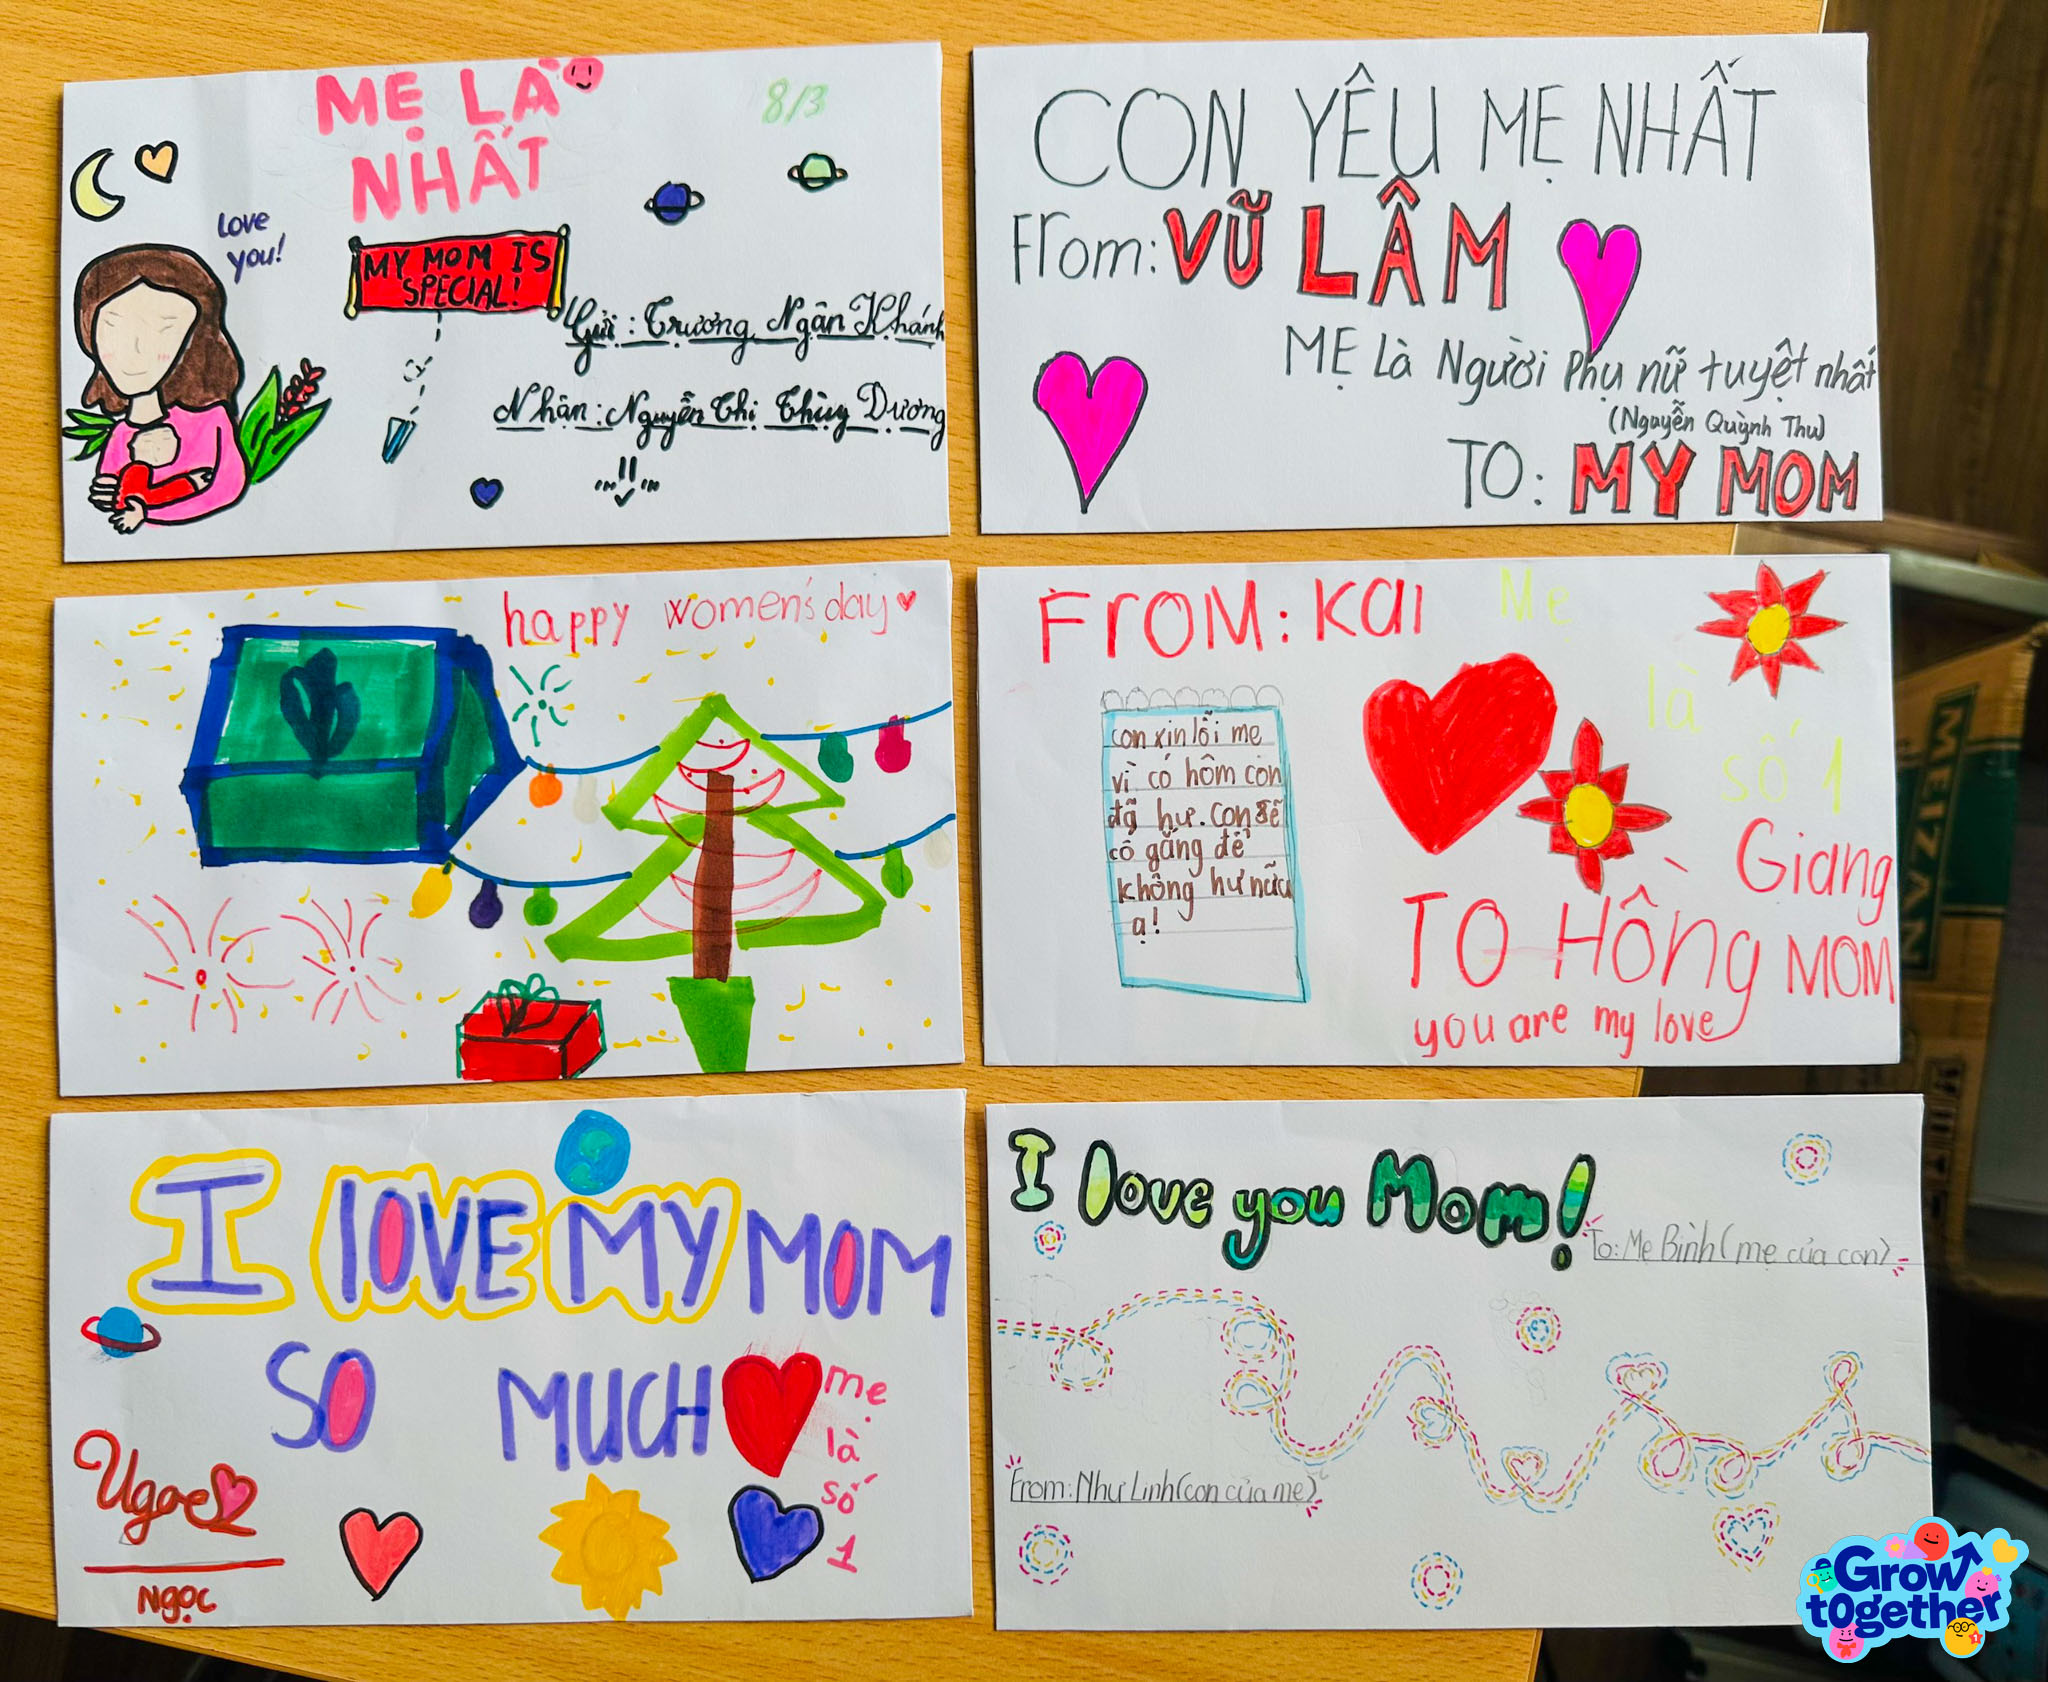 MẸ LÀ
NHẤT
8/3
Love
you!
MY MOM IS
SPECIAL!
Gửi : Trương Ngân Khánh
Nhận : Nguyễn Thị Thùy Dương
CON YÊU MẸ NHẤT
From: VŨ LÂM
MẸ Là Người Phụ nữ tuyệt nhất
(Nguyễn Quỳnh Thu)
TO: MY MOM
happy women's day
FROM: KaI
Mẹ
là
số 1
con xin lỗi mẹ
vì có hôm con
đã hư. Con sẽ
cố gắng để
không hư nữa
ạ!
Giang
TO Hồng MOM
you are my love
I lOVE MY MOM
SO MUCH
mẹ
là
số
1
Ngọc
I love you Mom!
To: Mẹ Bình (mẹ của con)
From: Như Linh (con của mẹ)
MEIZAN
Grow
together